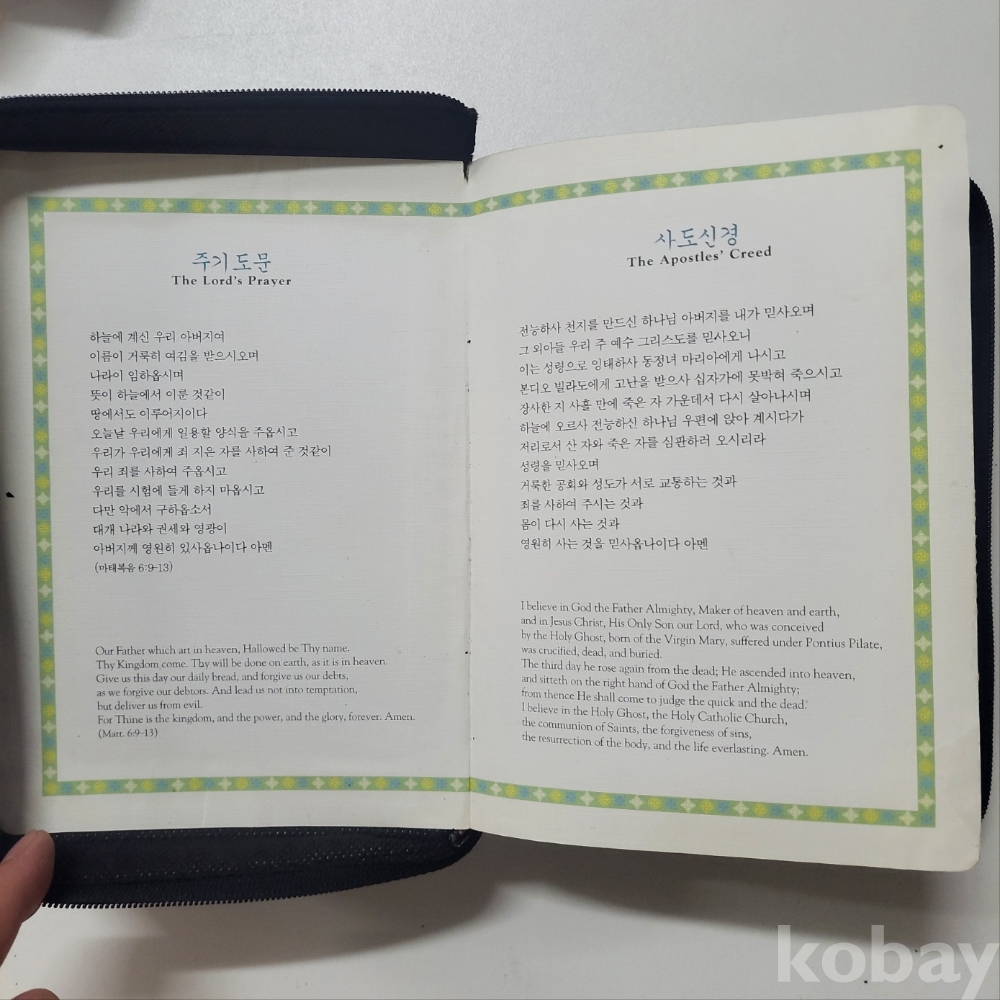 주기도문
The Lord's Prayer
하늘에 계신 우리 아버지여
이름이 거룩히 여김을 받으시오며
나라이 임하옵시며
뜻이 하늘에서 이룬 것같이
땅에서도 이루어지이다
오늘날 우리에게 일용할 양식을 주옵시고
우리가 우리에게 죄 지은 자를 사하여 준 것같이
우리 죄를 사하여 주옵시고
우리를 시험에 들게 하지 마옵시고
다만 악에서 구하옵소서
대개 나라와 권세와 영광이
아버지께 영원히 있사옵나이다 아멘
(마태복음 6:9-13)
Our Father which art in heaven, Hallowed be Thy name.
Thy Kingdom come. Thy will be done on earth, as it is in heaven.
Give us this day our daily bread, and forgive us our debts,
as we forgive our debtors. And lead us not into temptation,
but deliver us from evil.
For Thine is the kingdom, and the power, and the glory, forever. Amen.
(Matt. 6:9-13)
사도신경
The Apostles' Creed
전능하사 천지를 만드신 하나님 아버지를 내가 믿사오며
그 외아들 우리 주 예수 그리스도를 믿사오니
이는 성령으로 잉태하사 동정녀 마리아에게 나시고
본디오 빌라도에게 고난을 받으사 십자가에 못박혀 죽으시고
장사한 지 사흘 만에 죽은 자 가운데서 다시 살아나시며
하늘에 오르사 전능하신 하나님 우편에 앉아 계시다가
저리로서 산 자와 죽은 자를 심판하러 오시리라
성령을 믿사오며
거룩한 공회와 성도가 서로 교통하는 것과
죄를 사하여 주시는 것과
몸이 다시 사는 것과
영원히 사는 것을 믿사옵나이다 아멘
I believe in God the Father Almighty, Maker of heaven and earth,
and in Jesus Christ, His Only Son our Lord, who was conceived
by the Holy Ghost, born of the Virgin Mary, suffered under Pontius Pilate,
was crucified, dead, and buried.
The third day he rose again from the dead; He ascended into heaven,
and sitteth on the right hand of God the Father Almighty;
from thence He shall come to judge the quick and the dead.
I believe in the Holy Ghost, the Holy Catholic Church,
the communion of Saints, the forgiveness of sins,
the resurrection of the body, and the life everlasting. Amen.
kobay